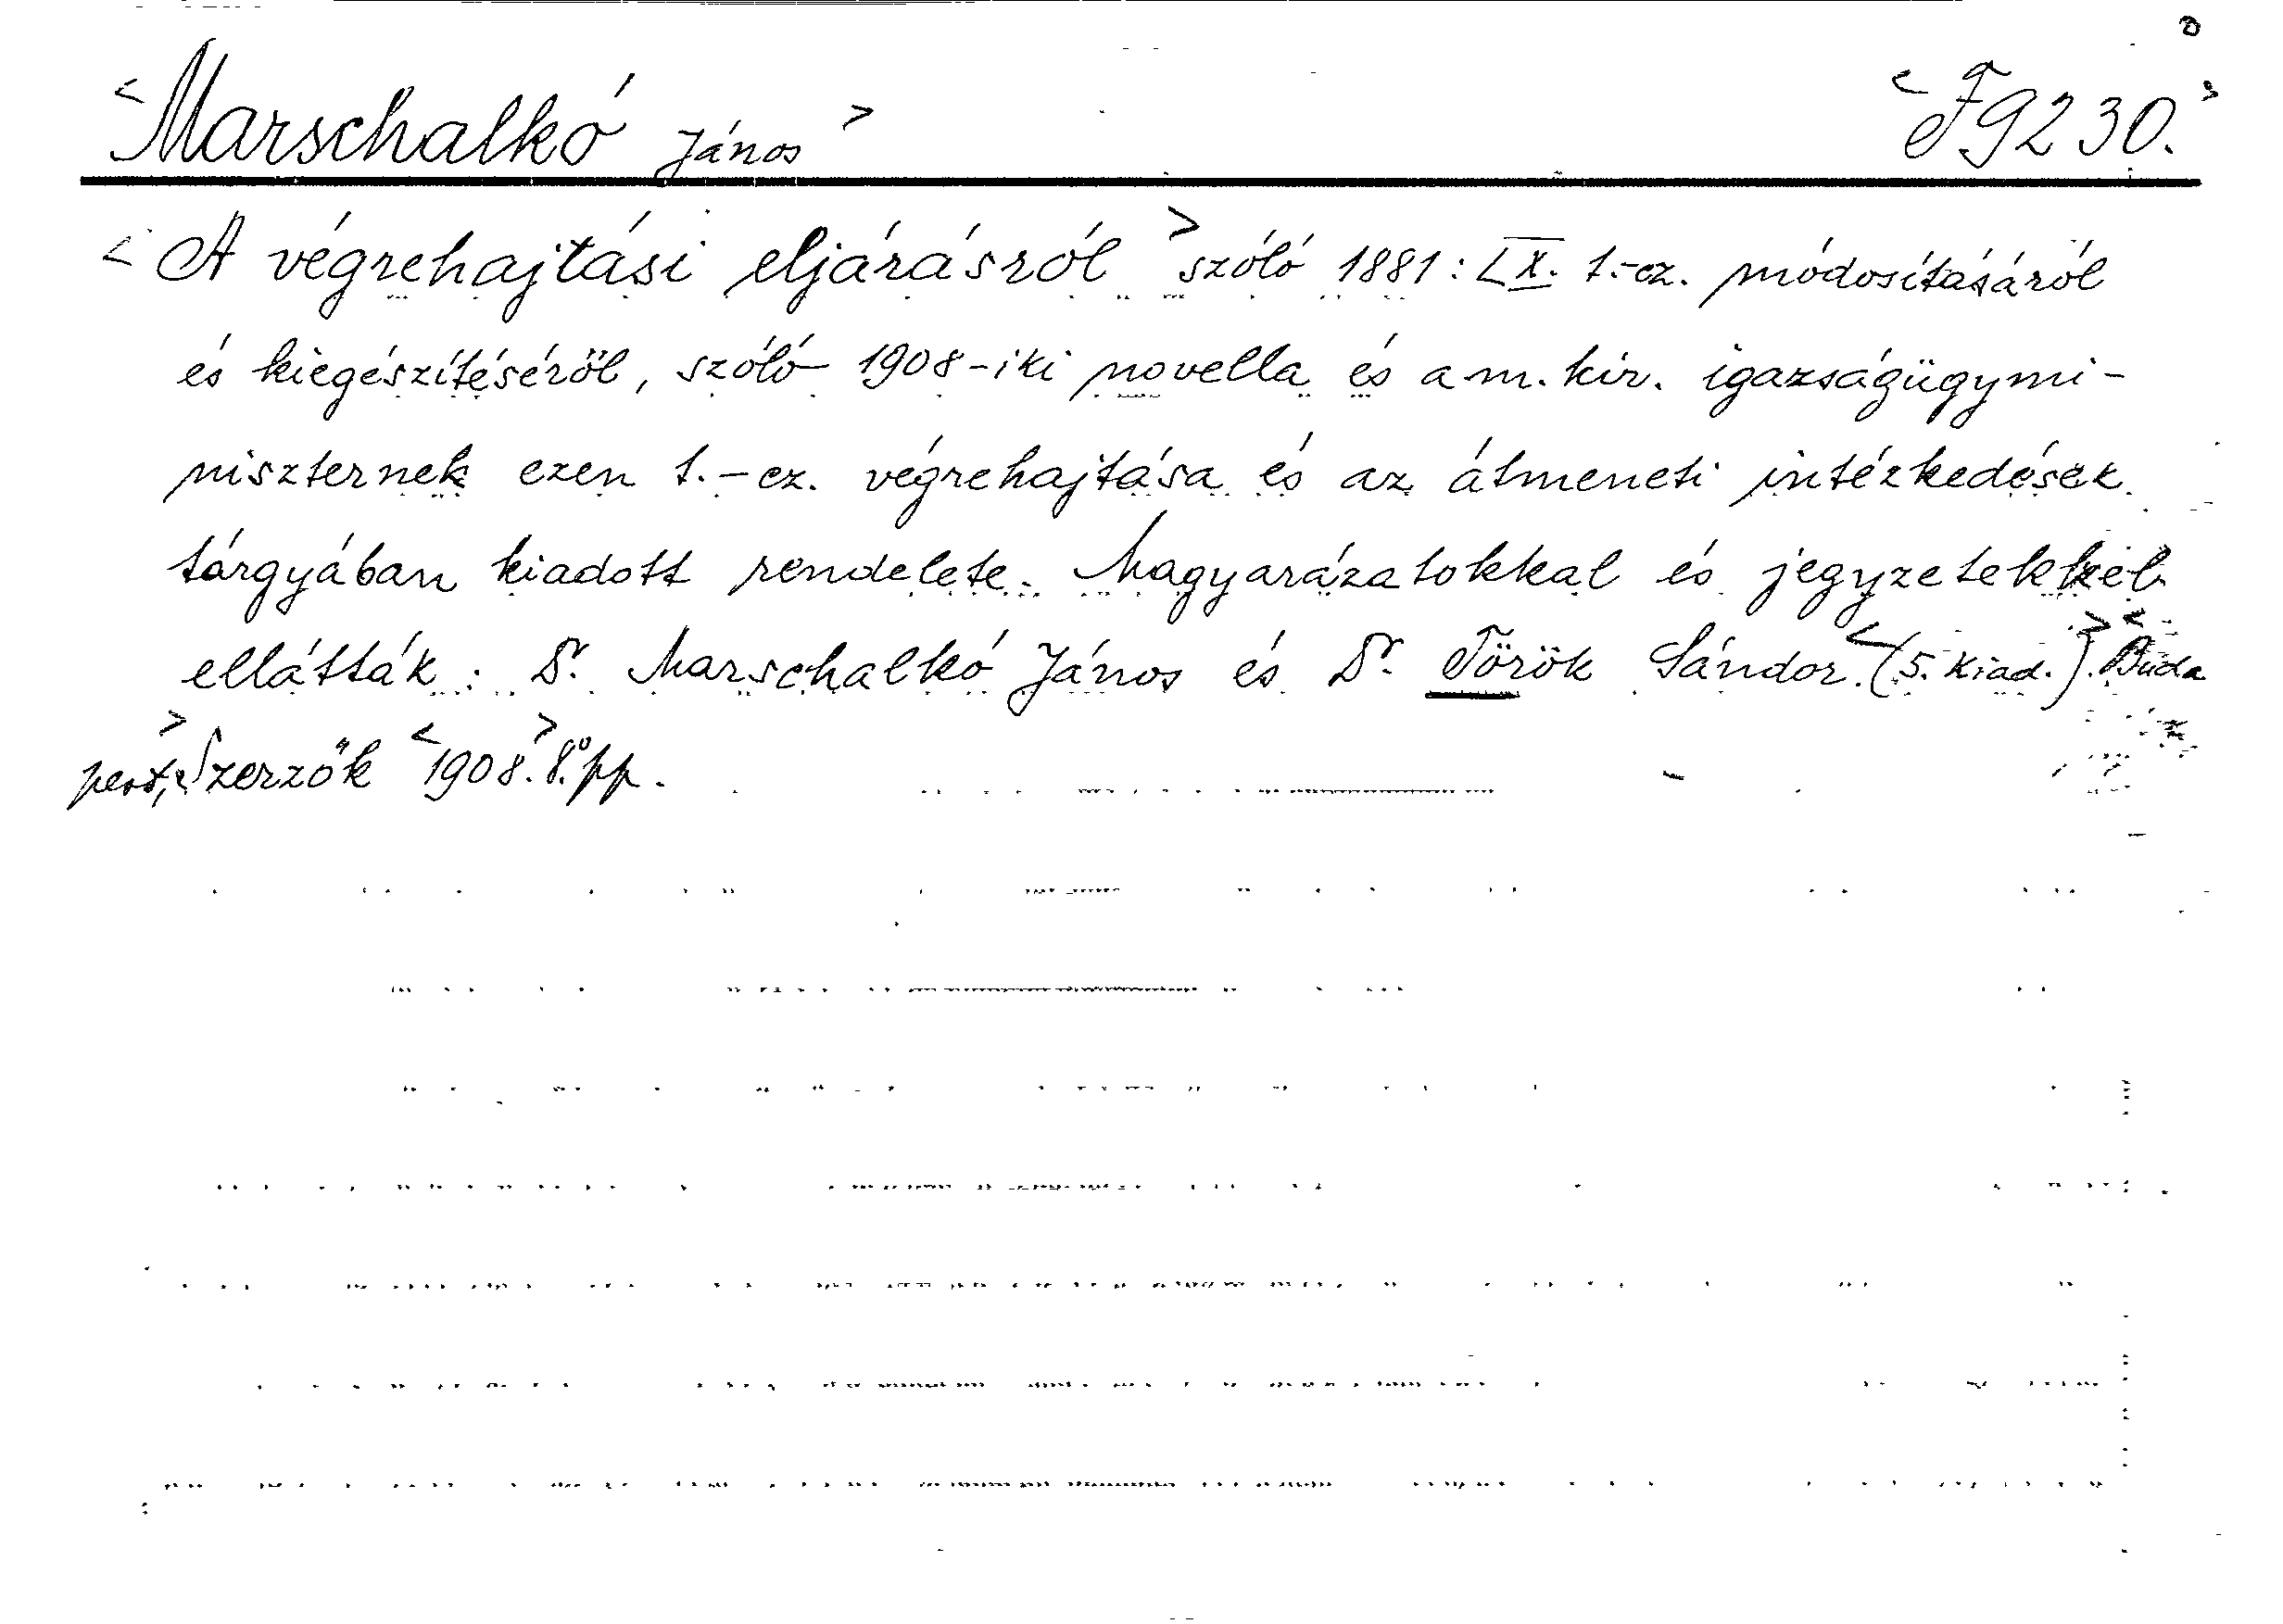 <Marschalkó János> <F9230.>
<A végrehajtási eljárásról> szóló 1881: LX. t.-cz. módosításáról
és kiegészítéséről, szóló 1908-iki novella és a m. kir. igazságügymi-
niszternek ezen t.-cz. végrehajtása és az átmeneti intézkedések
tárgyában kiadott rendelete. Magyarázatokkal és jegyzetekkel
ellátták: Dr. Marschalkó János és Dr. Török Sándor. <(5. kiad.).> <Buda
pest,> Szerzők <1908.> 8.° pp.